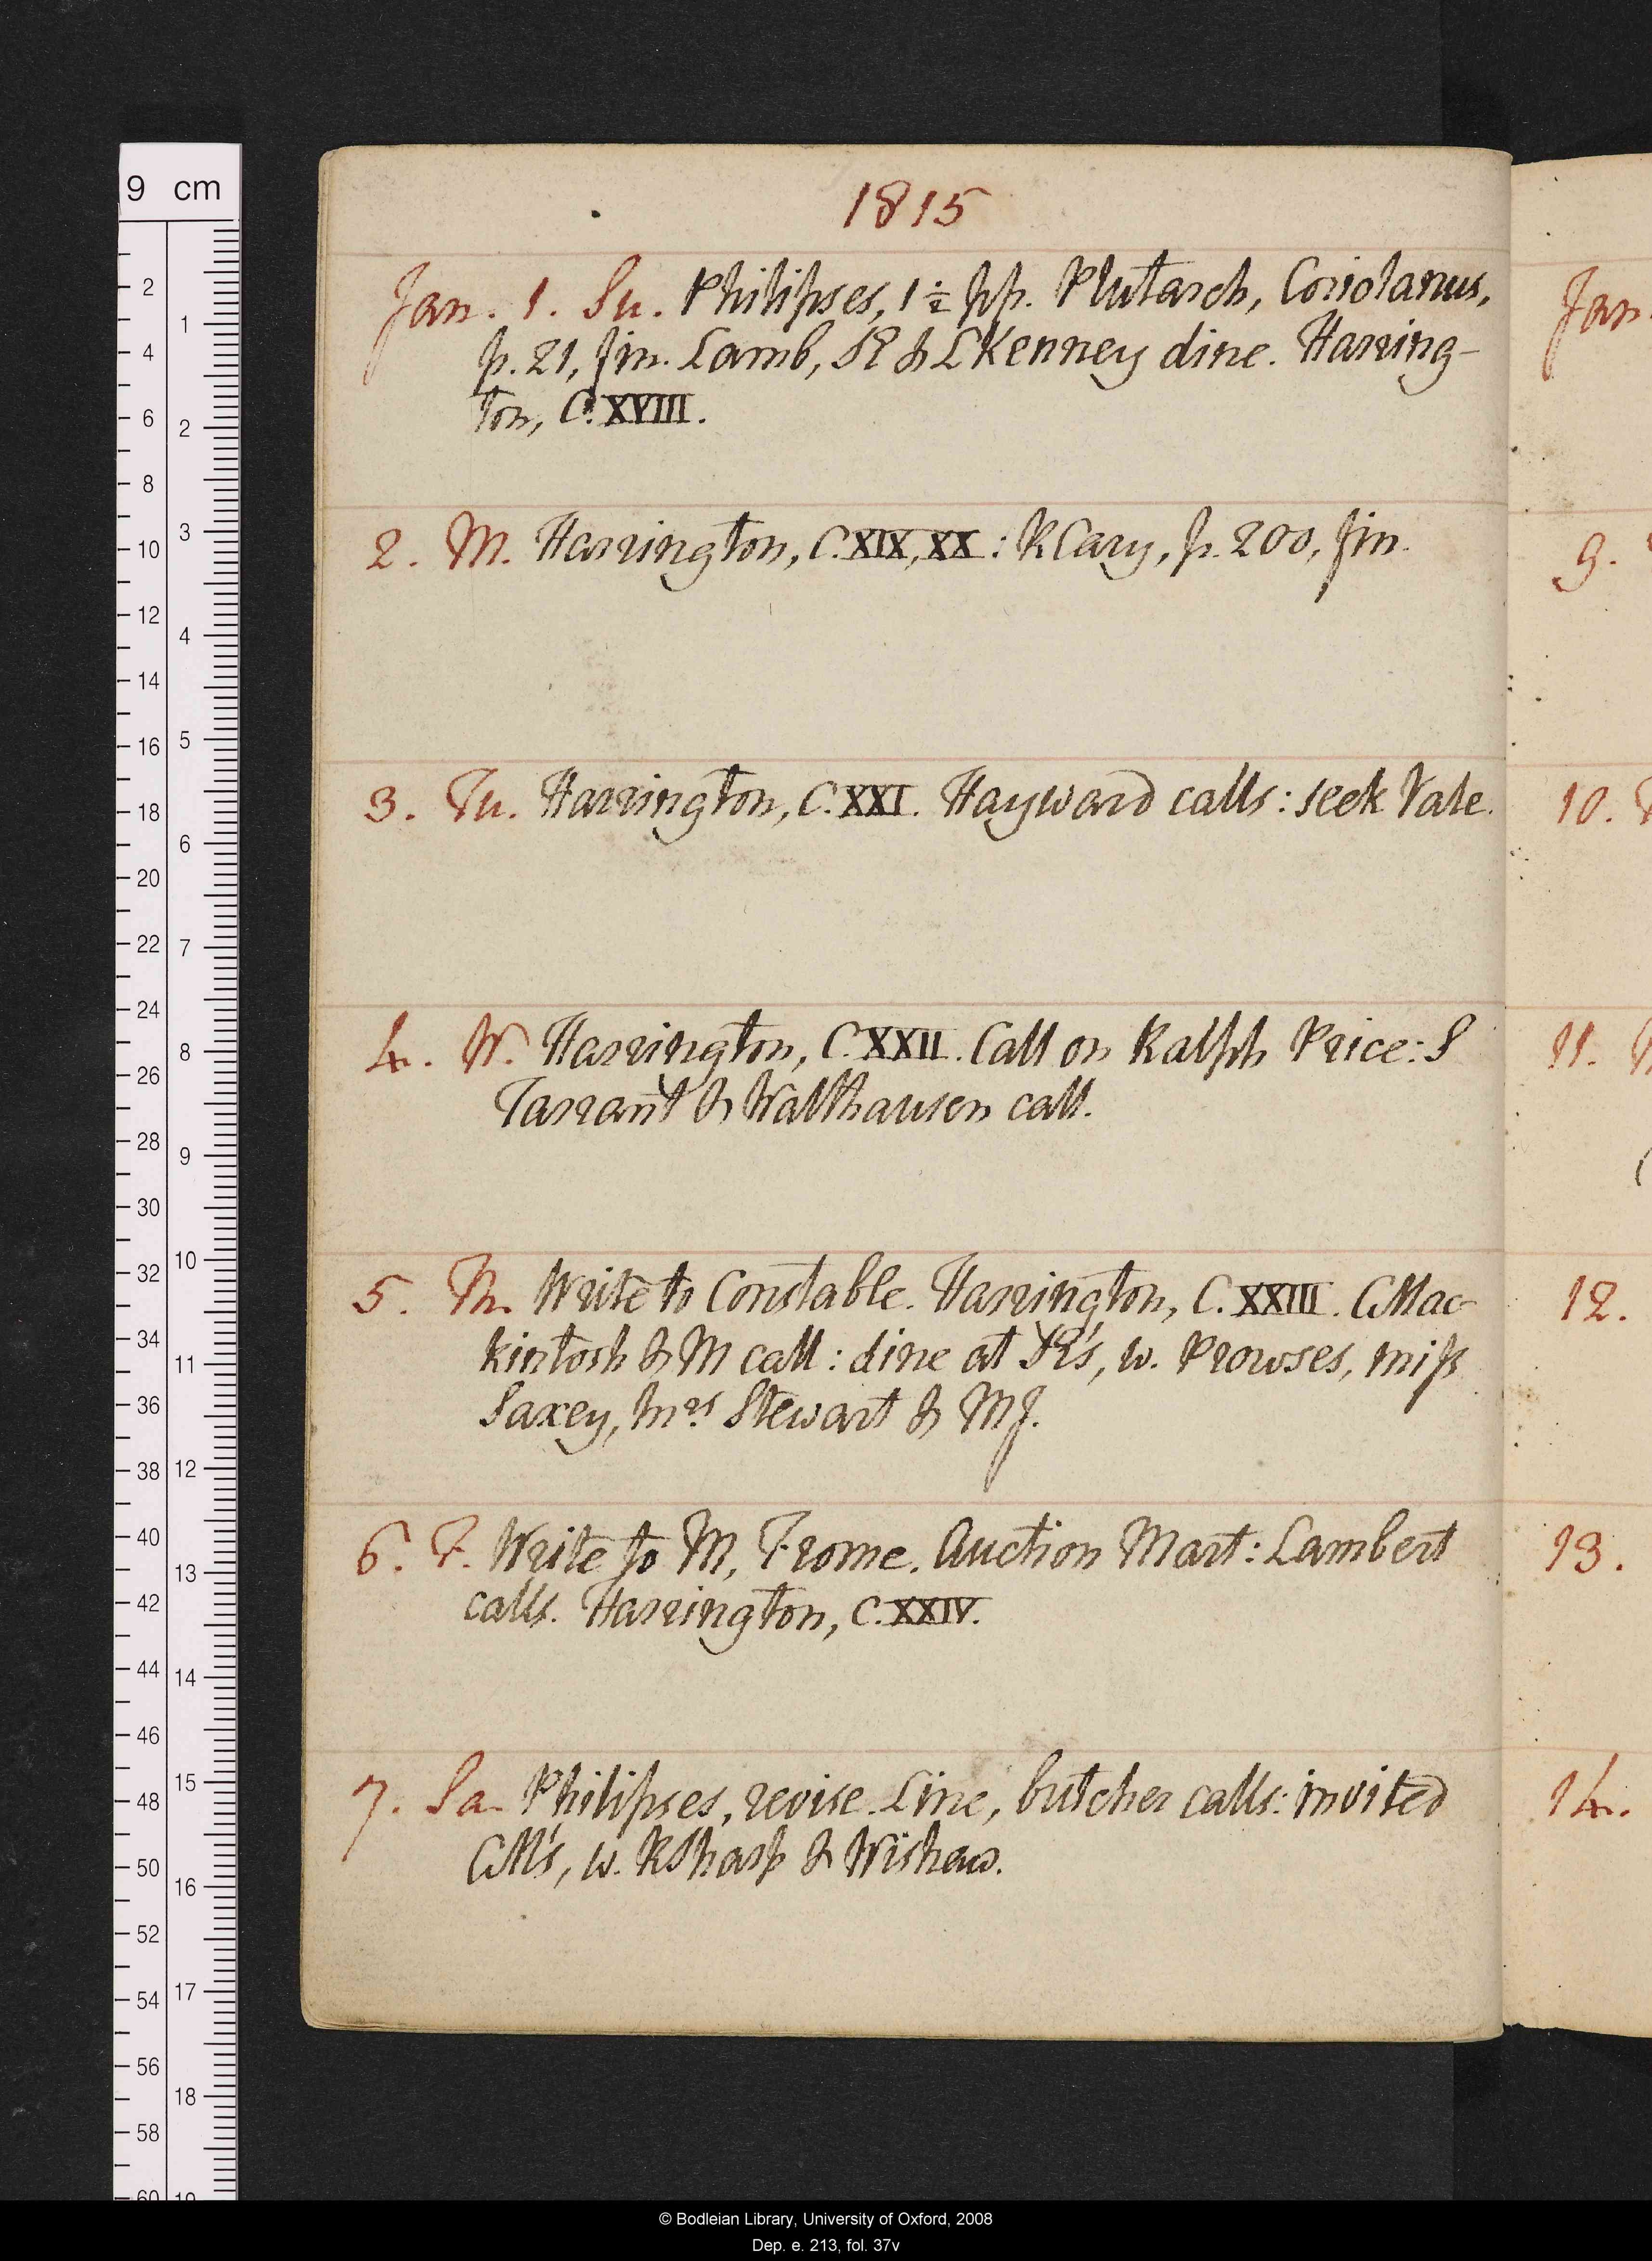 1815
Jan. 1. Su. Philipses, 1 1/2 pp. Plutarch, Coriolanus,
p. 21, fin. Lamb, JR & LKenney dine. Harring-
ton, C. XVIII.
2. M. Harrington, C. XIX, XX: RCary, p. 200, fin.
3. Tu. Harrington, C. XXI. Hayward calls: seek Vale.
4. W. Harrington, C. XXII. Call on Ralph Price: S
Tarrant & Walthausen call.
5. Th. Write to Constable. Harrington, C. XXIII. CMac-
kintosh & M call: dine at JR's, w. Prowses, miss
Saxey, mrs Stewart & MJ.
6. F. Write to M, Frome. Auction Mart: Lambert
calls. Harrington, C. XXIV.
7. Sa. Philipses, revise. Line, butcher calls: invited
CM's, w. RSharp & Wishaw.
Jan.
9.
10.
11.
12.
13.
14.
9 cm
2
4
6
8
10
12
14
16
18
20
22
24
26
28
30
32
34
36
38
40
42
44
46
48
50
52
54
56
58
60
1
2
3
4
5
6
7
8
9
10
11
12
13
14
15
16
17
18
19
© Bodleian Library, University of Oxford, 2008
Dep. e. 213, fol. 37v